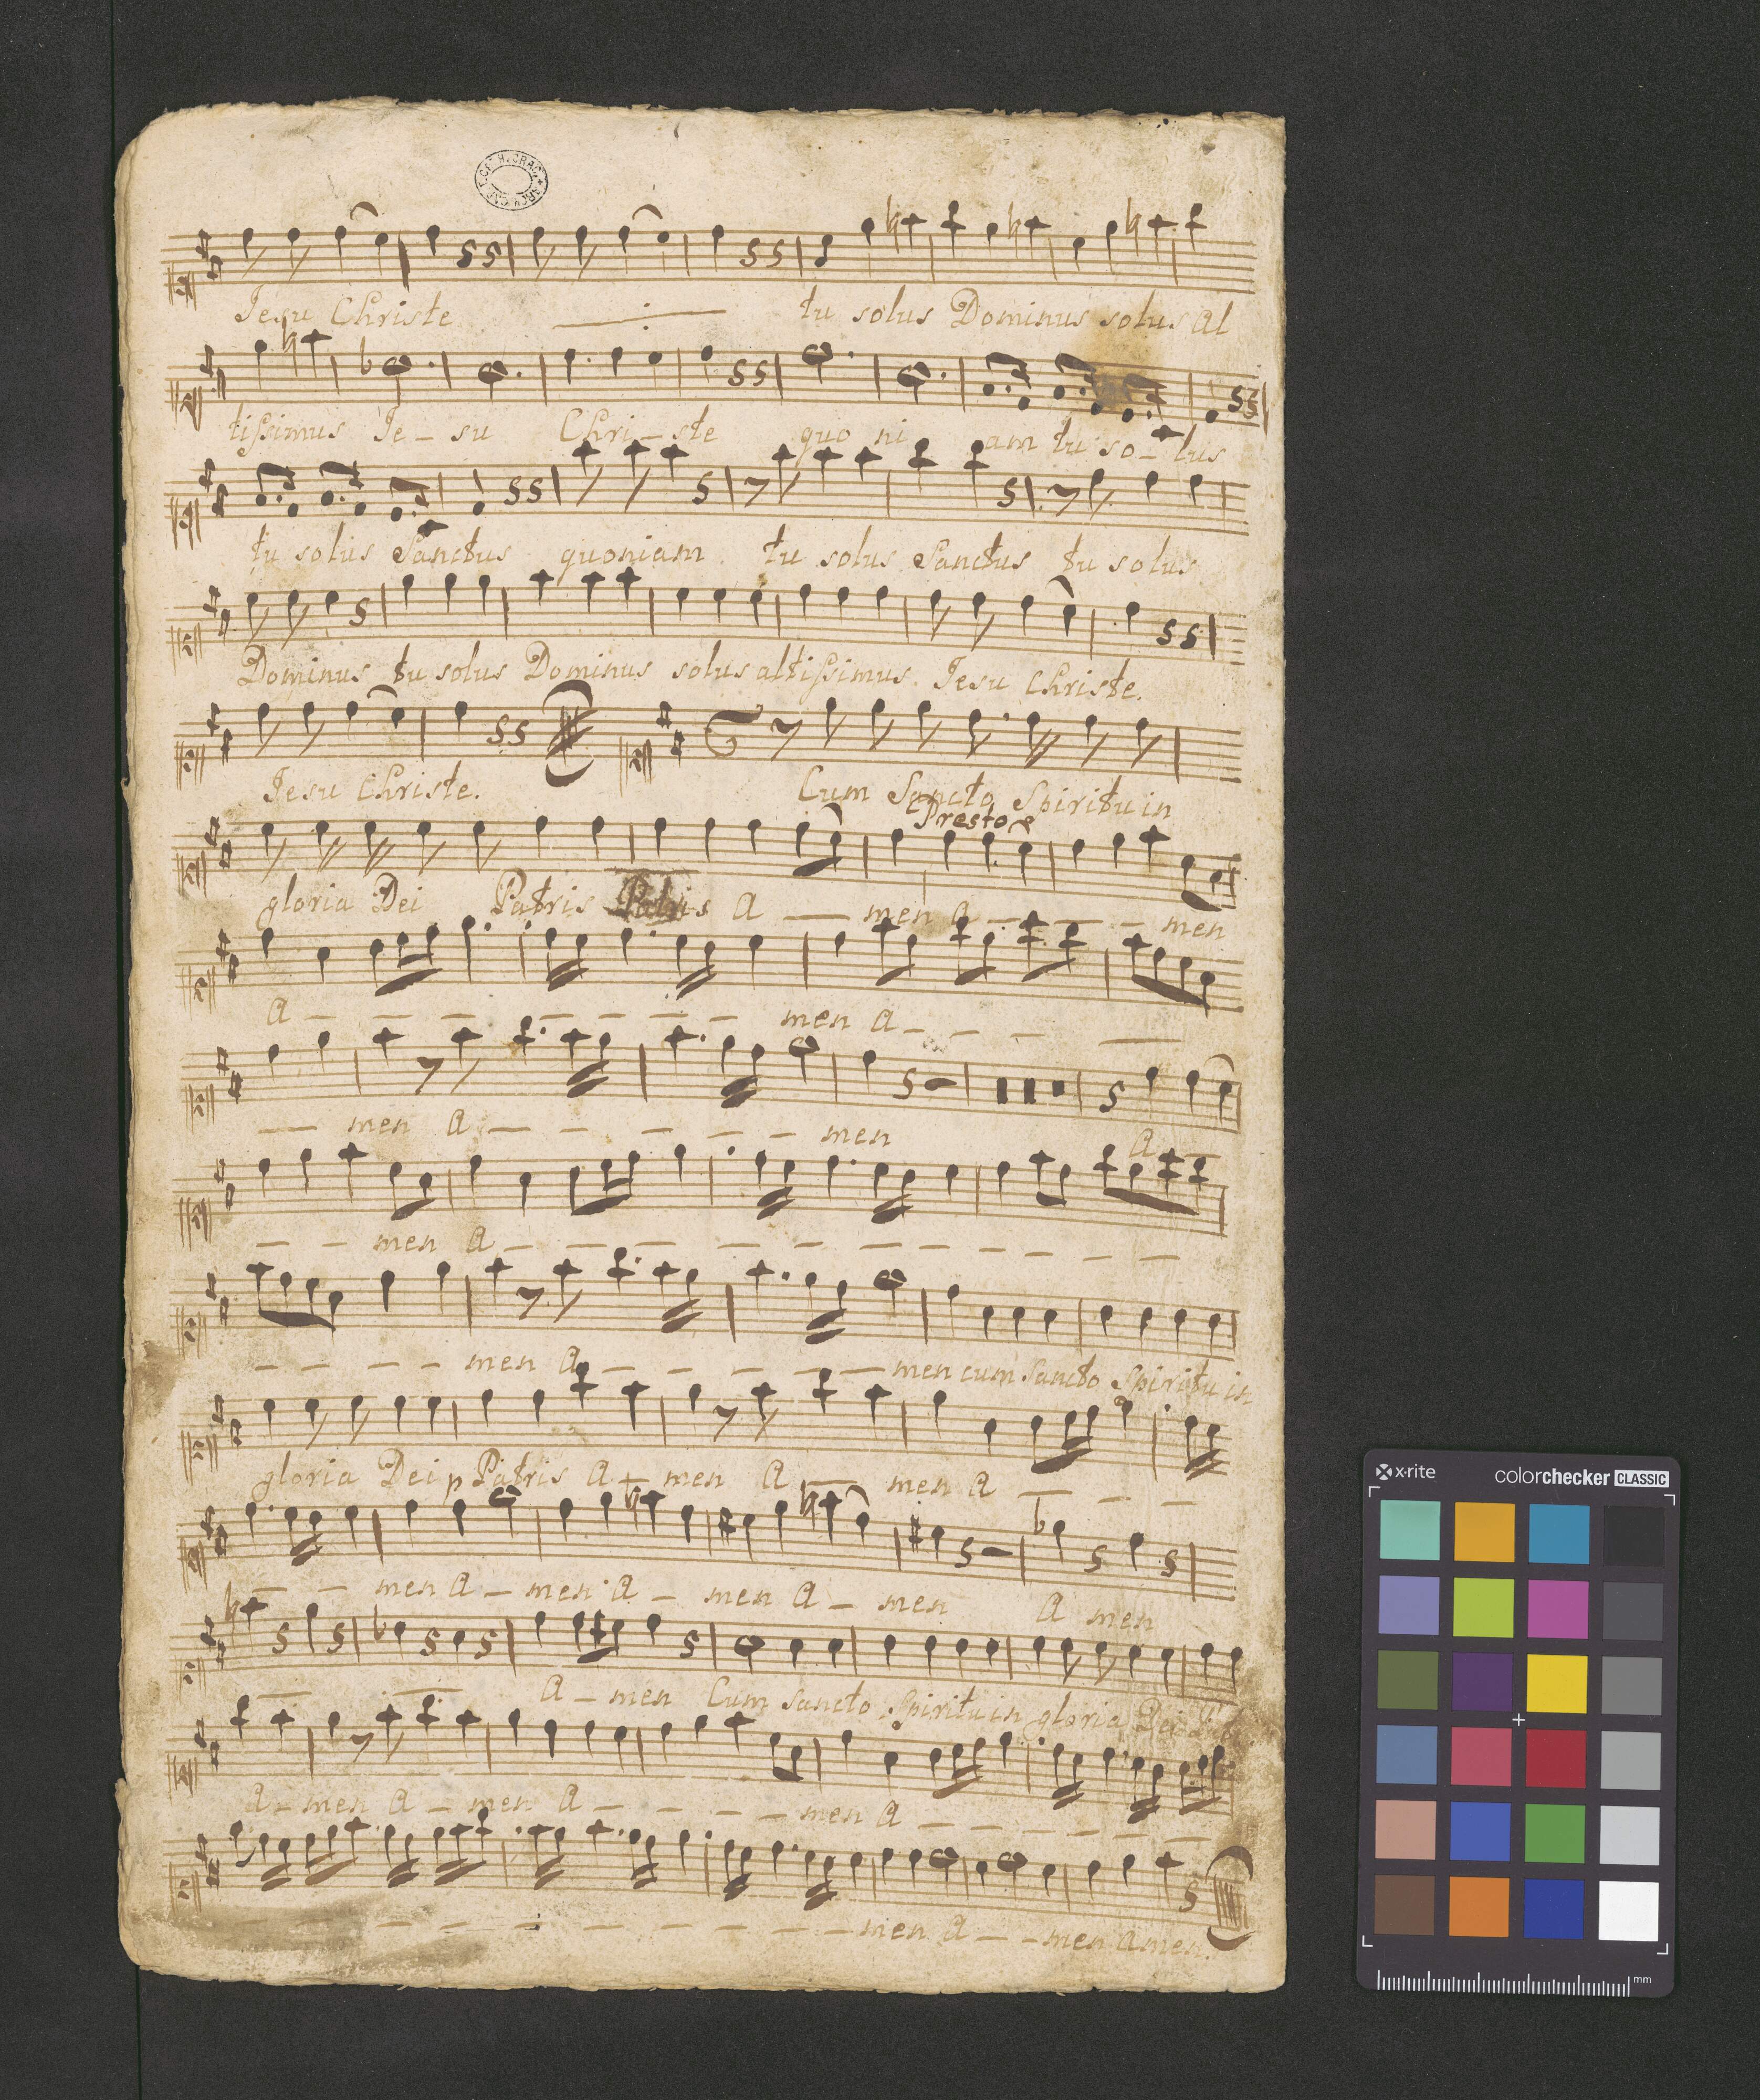 Jesu Christe tu solus Dominus solus Al
tiſsimus Je - su Chri - ste quo ni am tu so - lus
tu solus Sanctus quoniam tu solus Sanctus tu solus
Dominus tu solus Dominus solus altiſsimus Jesu Christe.
Jesu Christe. Cum Sancto Spiritu in
Presto
gloria Dei Patris Patris A - men A - - - men
A - - - - - - - men A - - -
- - men A - - - - - men A
- - men A - - - - - - - - - -
- - - - men A - - - - men cum Sancto Spiritu in
gloria Dei p Patris A - men A - men A - - -
- - men A - men A - men A - men A men
A - men Cum Sancto Spiritu in gloria Dei
A - men A - men A - - - - men A - - - - -
- - - - - - - - - - men A - - - men amen.
x-rite colorchecker CLASSIC
mm